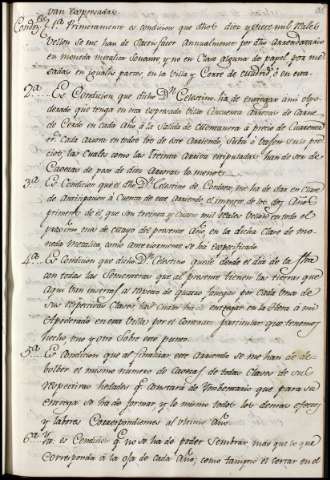 van expresadas
Condiz.es 1ª Primeramente es condicion que dhos diez y siete mil Reales
Vellon se me han de satisfacer Annualmente por dho Arrendamiento
en moneda metalica sonante y no en clase alguna de papel, por me-
sadas en iguales partes en la Villa y Corte de Madrid, ò en esta.
2ª Es Condicion que dicho Dn Celestino ha de entregar ami Apo-
derado que tenga en esta expresada Villa Cinquenta Arrobas de Carne
de Cerdo en cada Año à la salida de
Cada Arroba en todos los de este Arriendo, suban ò bajen sus pre-
cios, las cuales como las treinta Arrobas estipuladas han de ser de
Cabezas de peso de diez Arrobas lo menos.
3ª Es Condicion que el dho Dn Celestino de Cordova, me ha de dar en Clase
de Anticipacion à Cuenta de este Arriendo el importe de los dos Años
primeros de el que son treinta y cuatro mil Reales Vellon en todo el
proximo mes de Mayo del presente Año, en la dicha Clase de mo-
neda Metalica como anteriormente se ha especificado
4ª Es Condicion que dicho Dn Celestino quede desde el dia de la fha
con todas las Sementeras que al presente tienen las tierras que
aqui van insertas
sus respectivas Clases, las cuales ha de entregar en la Hera à mi
Apoderado en esta Villa por el Contrato particular que tenemos
hecho uno y otro sobre este punto.
5ª Es Condicion que al finalizar este Arriendo se me han de de-
bolber el mismo numero de Cavezas de todas Clases de sus
respectivos hedades qe constará de Ymbentario que para su
entrega se ha de formar y lo mismo todos los demas efectos
y Labores Correspondientes al ultimo Año.
6ª Yt. es Condicion qe no se ha de poder sembrar mas que lo que
corresponda à la oja de cada Año; como tampoco el entrar en el